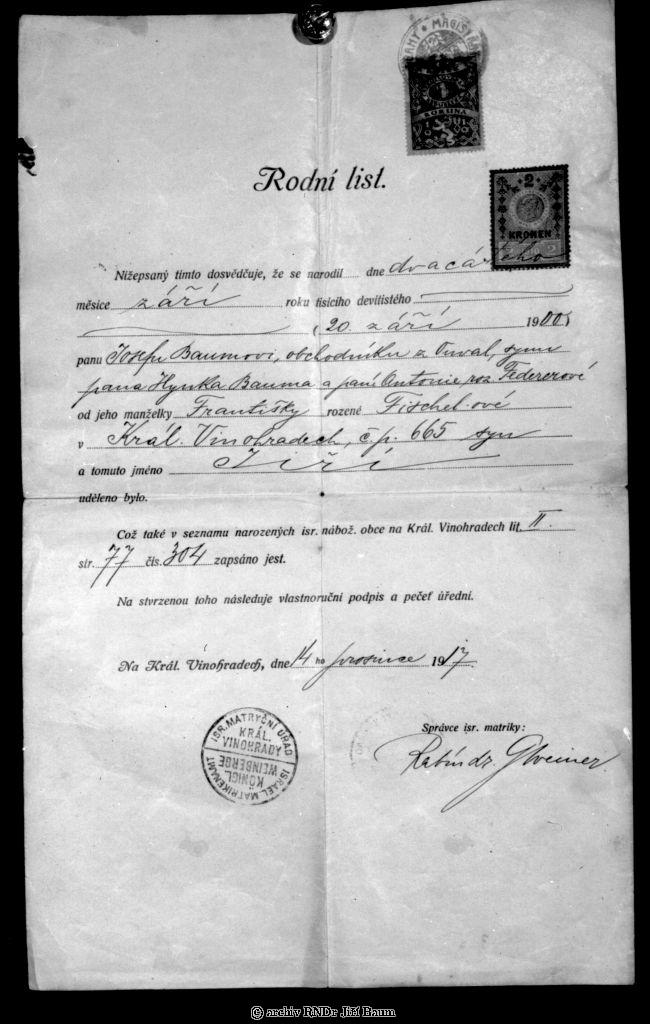 MAGIST
KORUNA
2
KRONEN
2
Rodní list.
Nížepsaný tímto dosvědčuje, že se narodil dne dvacátého
měsíce září roku tisícího devítistého
(20. září 1900)
panu Josefu Baumovi, obchodníku z Ouval, synu
pana Hynka Bauma a paní Antonie, roz. Federerové
od jeho manželky Františky rozené Fischel-ové
v Král. Vinohradech, č.p. 665 syn
a tomuto jméno Jiří
uděleno bylo.
Což také v seznamu narozených isr. nábož. obce na Král. Vinohradech lit. II.
str. 77 čís. 304 zapsáno jest.
Na stvrzenou toho následuje vlastnoruční podpis a pečeť úřední.
Na Král. Vinohradech, dne 14 ho prosince 1917.
Správce isr. matriky:
Rabín dr.
ISR. MATRYČNÍ ÚŘAD
KRÁL.
VINOHRADY
KÖNIGL.
WEINBERGE
ISRAEL. MATRIKENAMT
© archiv RNDr Jiří Baum